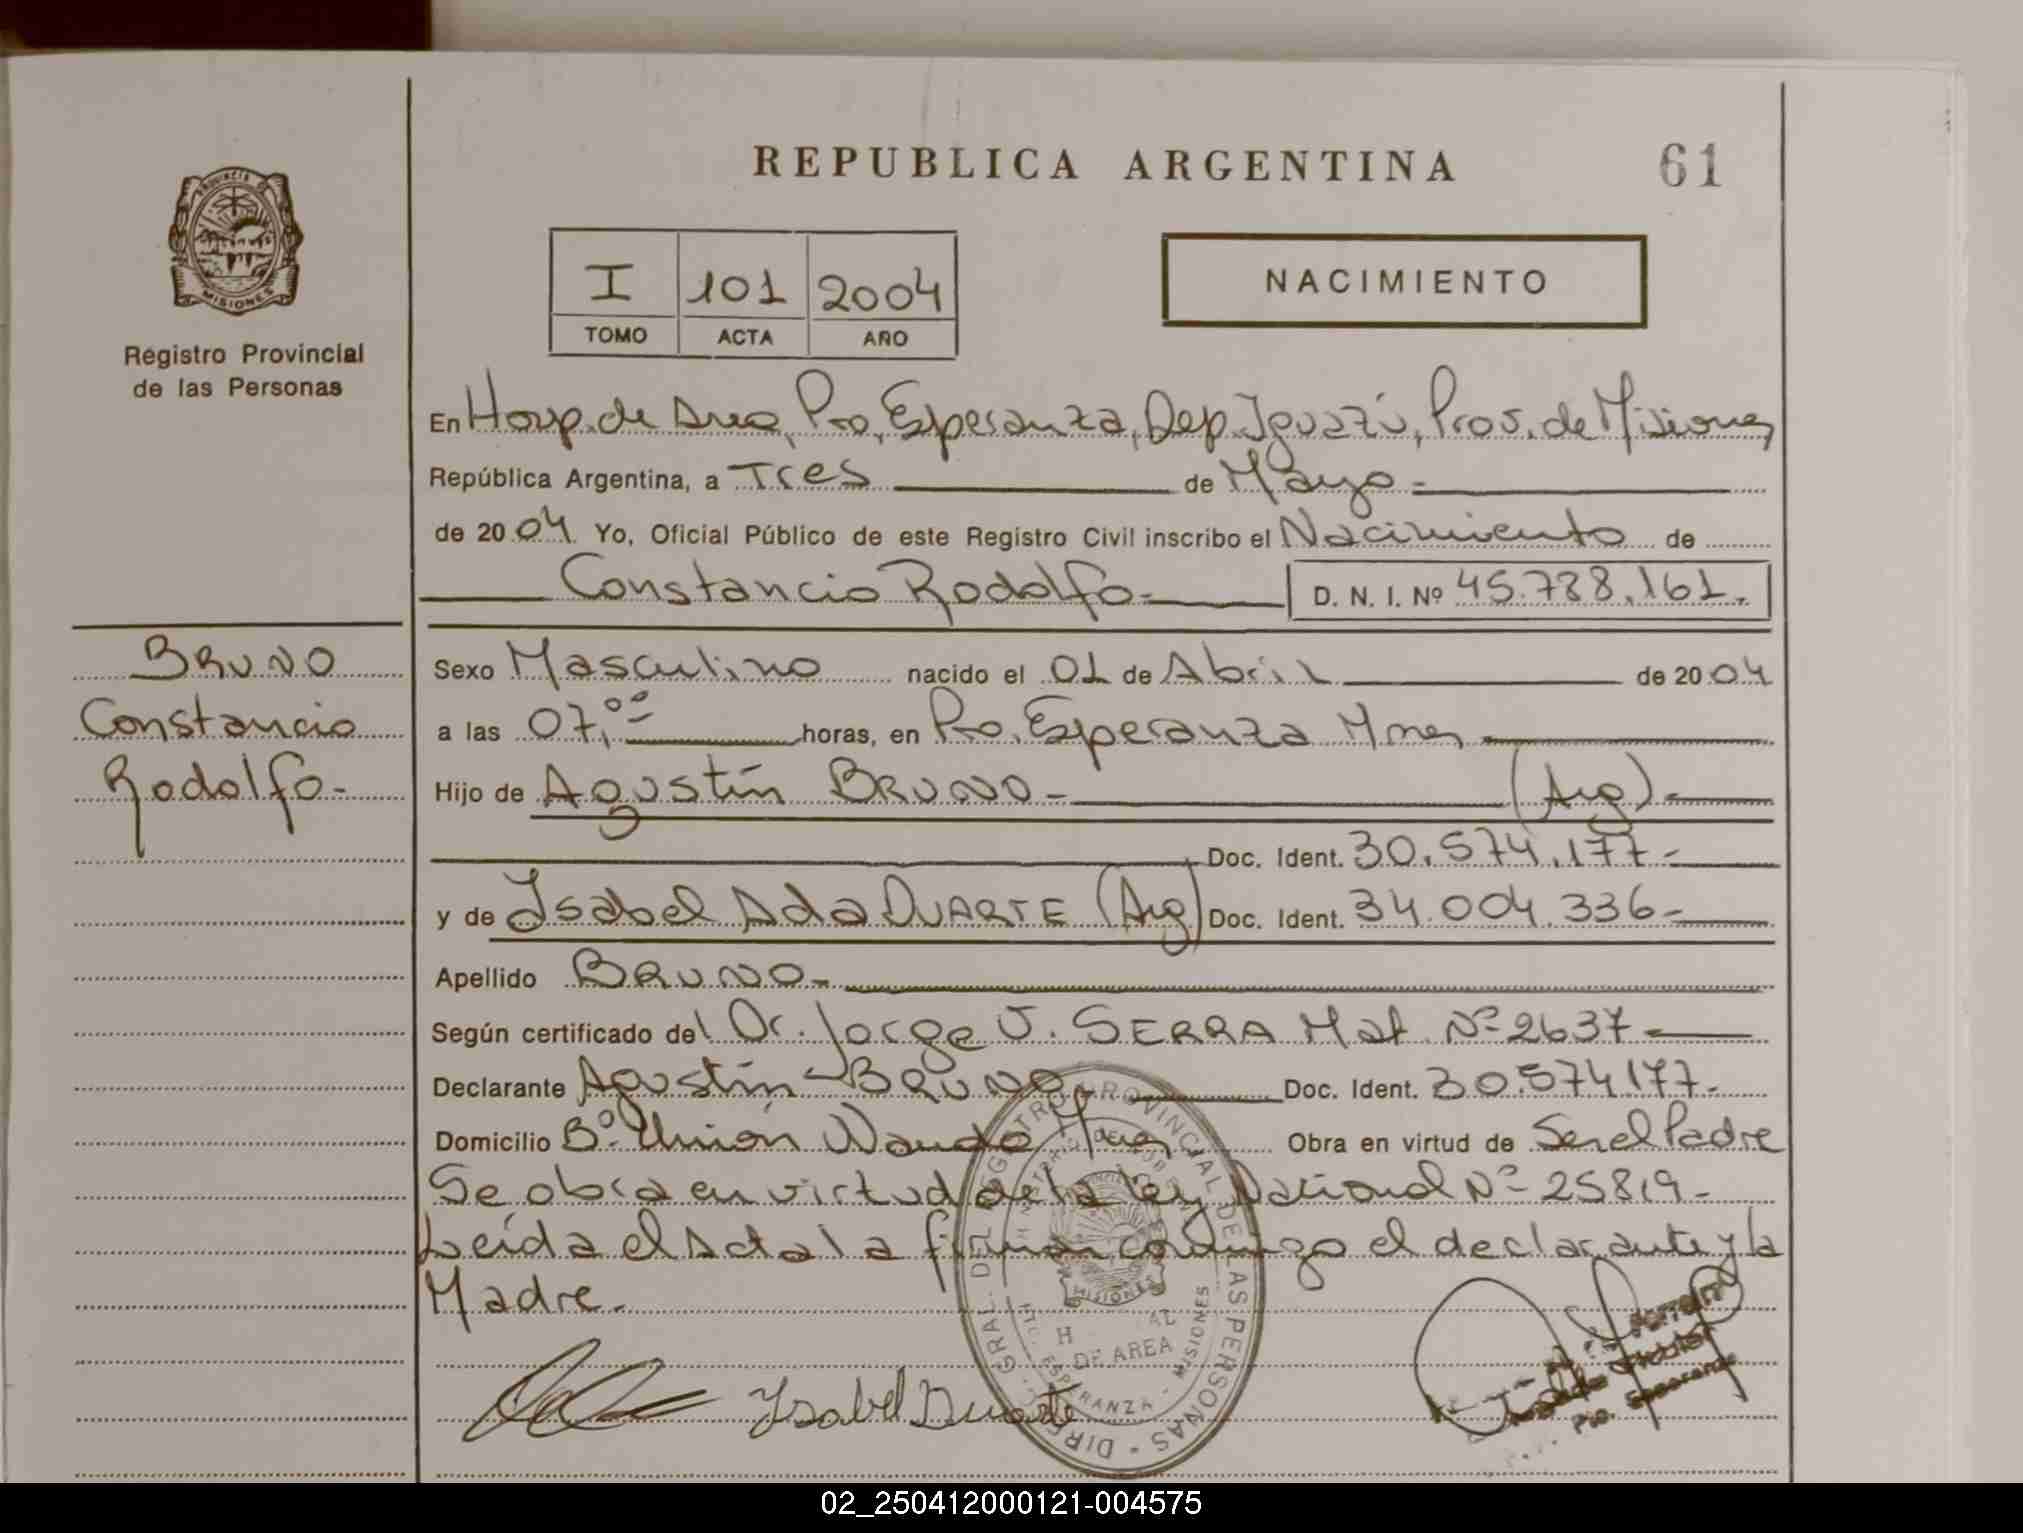 REPUBLICA ARGENTINA
61
PROVINCIA DE
MISIONES
Registro Provincial
de las Personas
I 101 2004
TOMO ACTA AÑO
NACIMIENTO
En Hosp. de Area, Pto. Esperanza, Dep. Iguazú, Prov. de Misiones
República Argentina, a Tres de Mayo.-
de 2004 Yo, Oficial Público de este Registro Civil inscribo el Nacimiento de
Constancio Rodolfo.- D. N. I. Nº 45.788.161.
BRUNO
Constancio
Rodolfo-
Sexo Masculino nacido el 01 de Abril de 2004
a las 07,ºº horas, en Pto. Esperanza Mnes
Hijo de Agustín BRUNO- (Arg).-
Doc. Ident. 30.574.177-
y de Isabel Ada DUARTE (Arg) Doc. Ident. 34.004.336-
Apellido BRUNO-
Según certificado del Dr. Jorge J. SERRA Mat. Nº 2637-
Declarante Agustín BRUNO Doc. Ident. 30.574.177-
Domicilio Bº. Unión Wanda Mnes Obra en virtud de Ser el Padre
Se obra en virtud de la ley Nacional Nº 25819-
Leída el Acta la firman conmigo el declarante y la
Madre.-
Isabel Duarte
DIREC. GRAL. DEL REGISTRO PROVINCIAL DE LAS PERSONAS
MISIONES
DE AREA
ESPERANZA - MISIONES
Pto. Esperanza
02_250412000121-004575